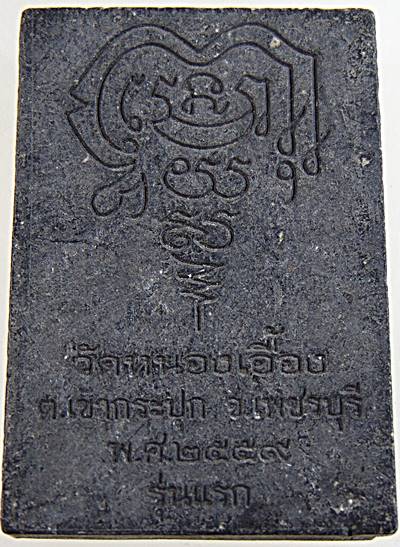 วัดหนองเอื้อง
ต.เขากระปุก จ.เพชรบุรี
พ.ศ.๒๕๕๙
รุ่นแรก